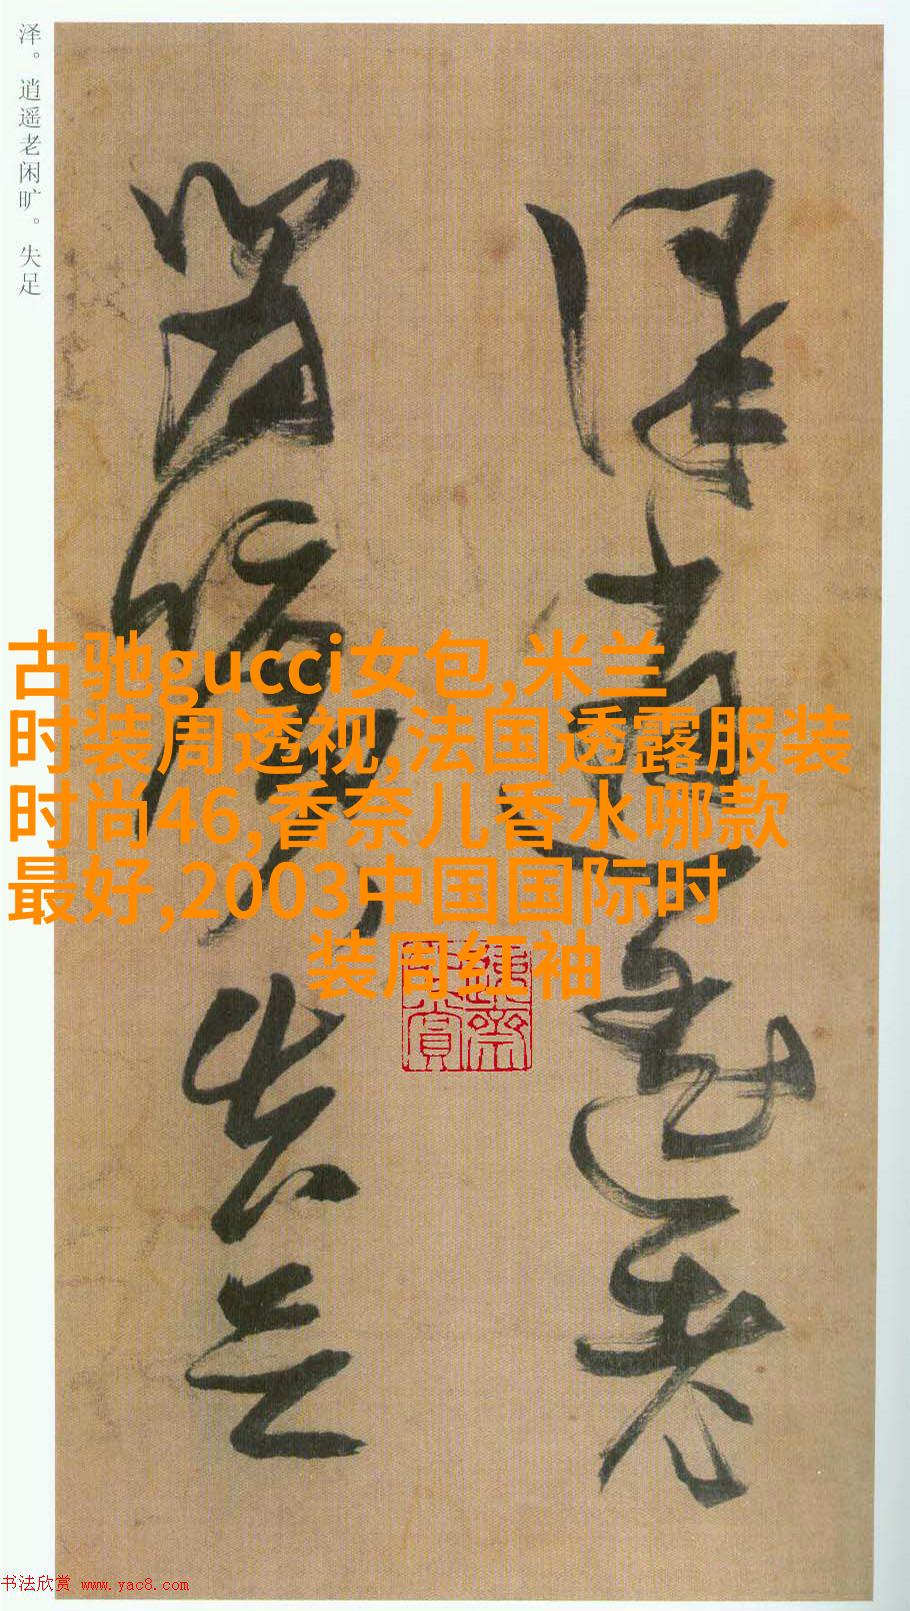 泽。逍遥老闲旷。失足
泽逍遥老
闲旷失足
古驰gucci女包,米兰
时装周透视,法国透露服装
时尚46,香奈儿香水哪款
最好,2003中国国际时
装周红袖
书法欣赏 www.yac8.com